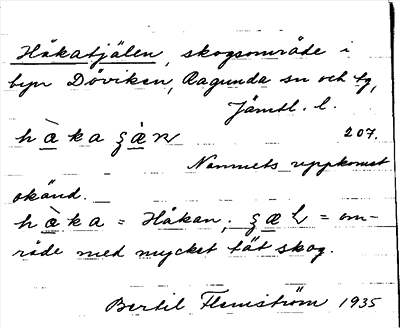 Håkatjälen, skogsområde i
byn Döviken, Ragunda sn och tg,
Jämtl. l.
207.
Namnets uppkomst
okänd.
= Håkan; = om-
råde med mycket tät skog.
Bertil Flemström 1935